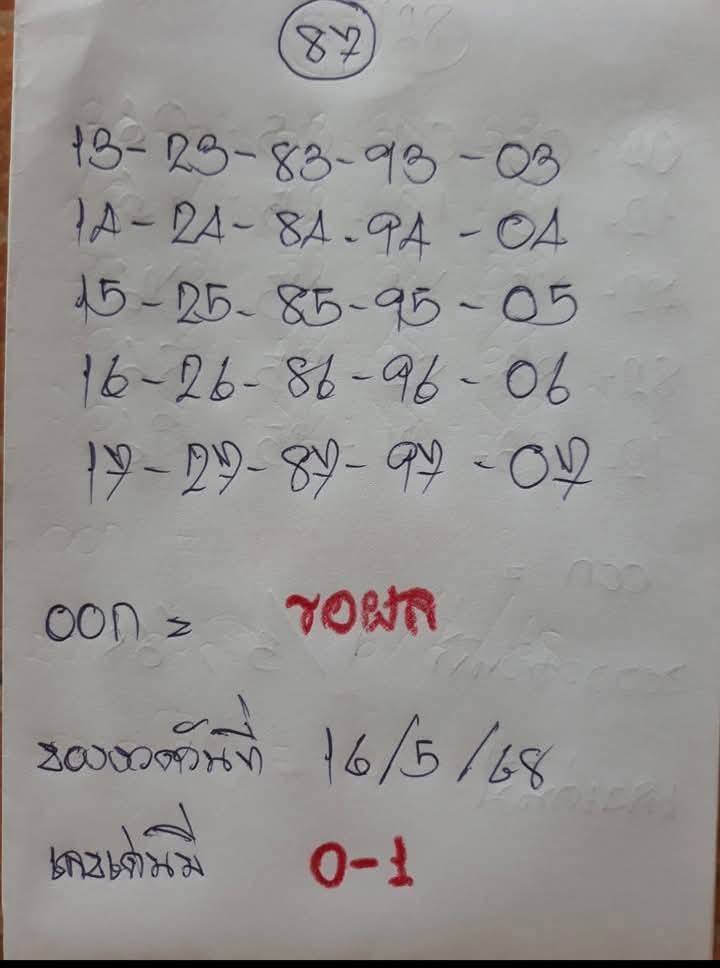 87
13-23-83-93-03
14-24-84-94-04
15-25-85-95-05
16-26-86-96-06
17-27-87-97-07
ออก = รอผล
ของงวดวันที่ 16/5/68
เลขเด่นมี 0-1